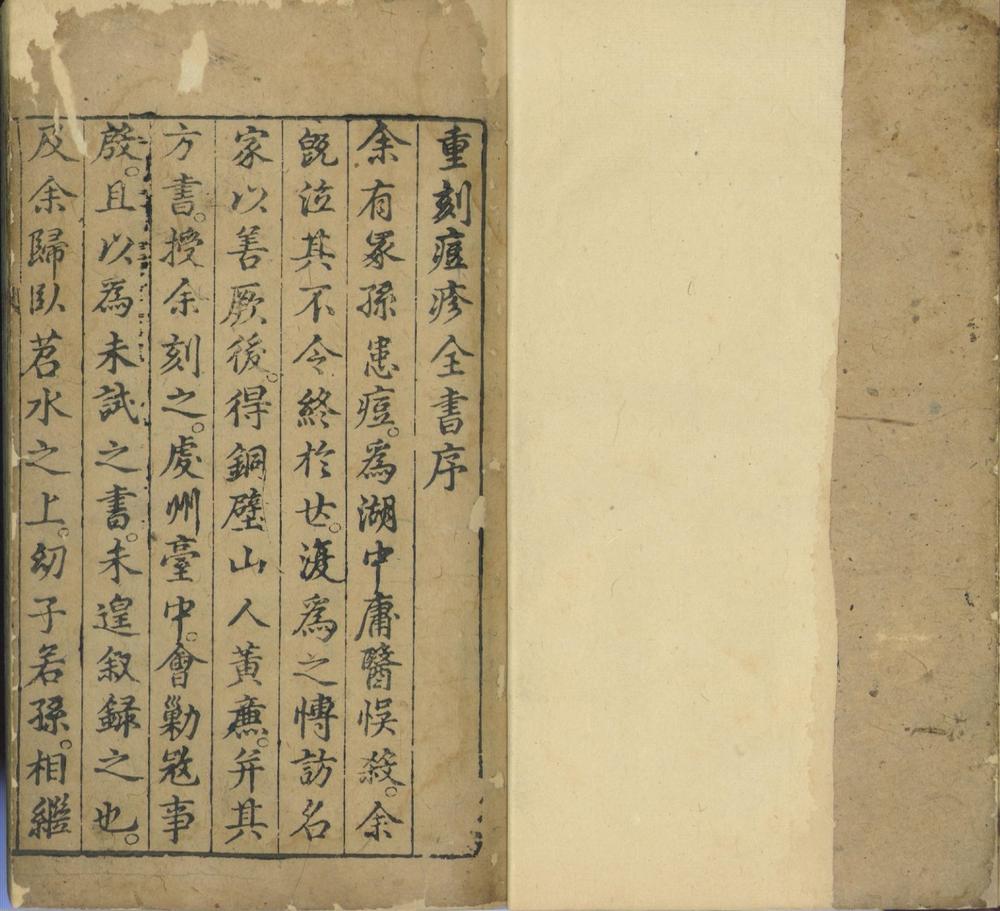 重刻痘疹全書序
余有冢孫患痘。為湖中庸醫悞殺。余
旣泣其不令終於世。復為之慱訪名
家以善厥後。得銅壁山人黃廉。并其
方書。授余刻之。處州臺中。會勦冦事
發。且以為未試之書。未遑叙録之也。
及余歸臥苕水之上。幼子若孫。相繼